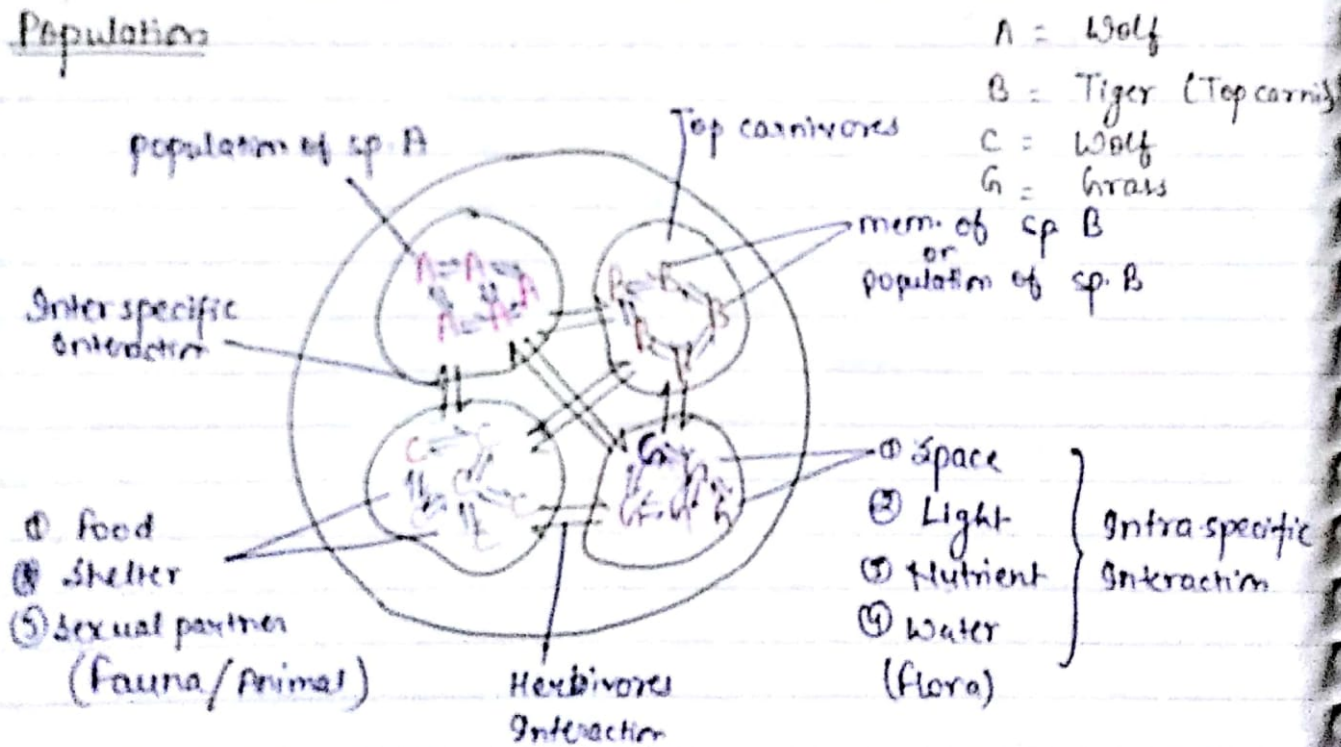 Population
A = Wolf
B = Tiger (Top carni
C = Wolf
G = Grass
population of sp. A
Top carnivores
mem. of sp B
or
population of sp. B
Inter specific
interaction
A A A
A A A
B B B
B B
C C
C C C
C
G
G G G
① Food
Shelter
③ Sexual partner
(Fauna/Animal)
Herbivores
Interaction
① Space
② Light
③ Nutrient
④ Water
(flora)
Intra-specific
Interaction